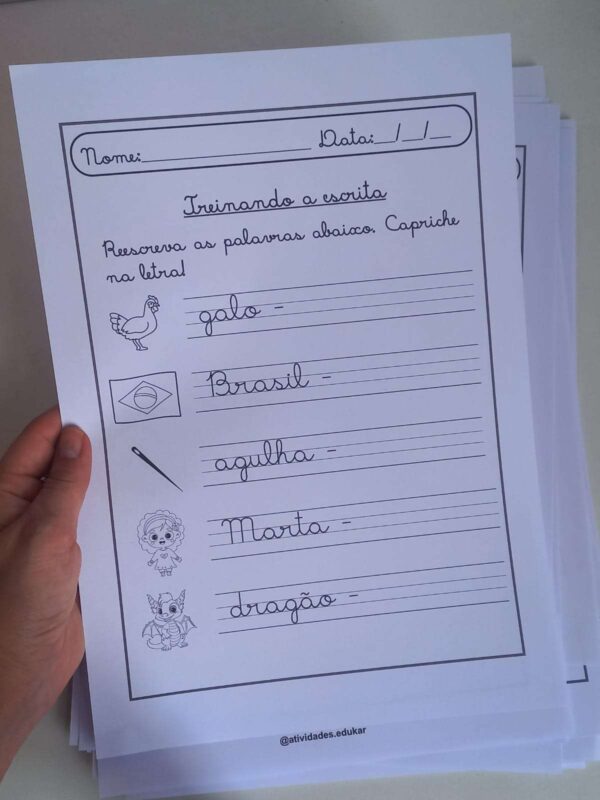 Nome:____________ Data:__/__/__
Treinando a escrita
Reescreva as palavras abaixo. Capriche
na letra!
galo -
Brasil -
agulha -
Marta -
dragão -
@atividades.edukar